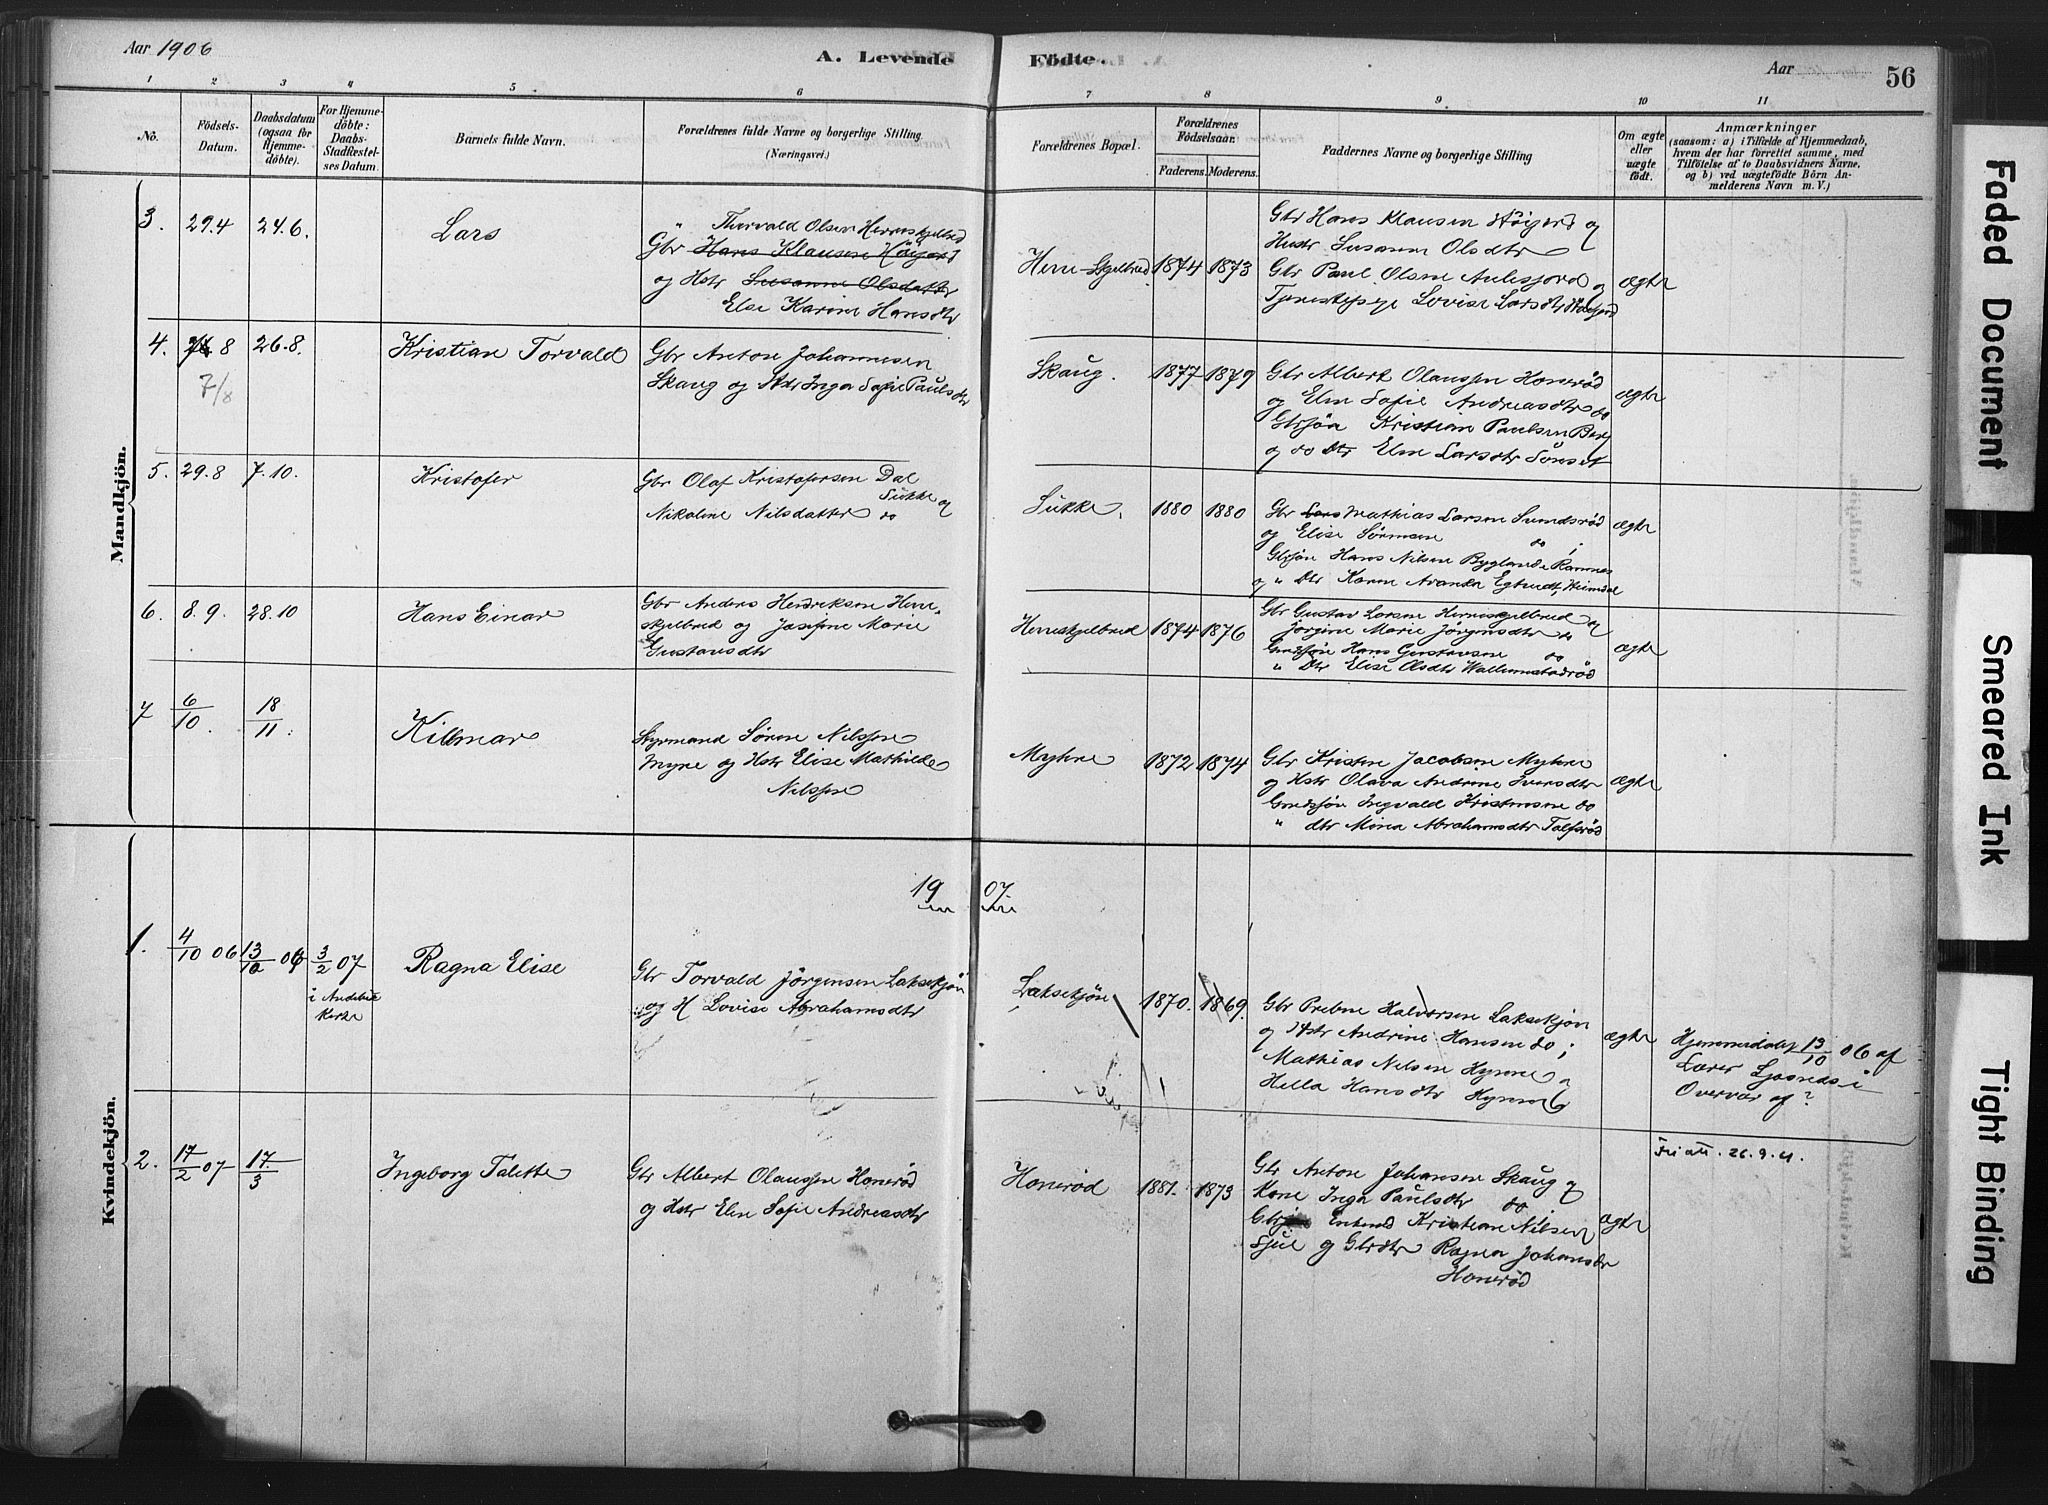 Aar 1906
A. Levende Födte.
Aar
56
1 2 3 4 5 6 7 8 9 10 11
No.
Födsels-
Datum.
Daabsdatum
(ogsaa for
Hjemme-
döbte).
For Hjemme-
döbte:
Daabs-
Stadfæstel-
ses Datum.
Barnets fulde Navn.
Forældrenes fulde Navne og borgerlige Stilling
(Næringsvei.)
Forældrenes Bopæl.
Forældrenes
Födselsaar.
Faderens. Moderens.
Faddernes Navne og borgerlige Stilling
Om ægte
eller
uægte
födt.
Anmærkninger
(saasom: a) i Tilfælde af Hjemmedaab,
hvem der har forrettet samme, med
Tilföielse af to Daabsvidners Navne.
og b) ved uægtefödte Börn An-
melderens Navn m. V.)
Mandkjön.
3. 29.4 24.6. Lars
" Thorvald Olsen Herreskjelbred
Gbr Hans Klausen Höijord
og Hstr Susanne Olsdatter
Else Karine Hansdtr
Herre-Skjelbred 1874 1873
Gbr Hans Klausen Höijord og
Hustr Susanne Olsdtr
Gbr Paul Olsen Aulesjord og
Tjenestepige Lovise Larsdtr
ægte
4. 8 26.8. Kristian Torvald
7/8
Gbr Anton Johannesen
Skaug og Hstr Inga Sofie Paulsdtr
Skaug. 1877 1879
Gbr Albert Olaussen Honerød
og Elen Sofie Andreasdtr do
Gbrsön Kristian Paulsen Berg
og do Dtr Elen Larsdtr
ægte
5. 29.8 7.10. Kristofer
Gbr Olaf Kristofersen Dal
Sukke og
Nikoline Nilsdatter do
Sukke. 1880 1880
Gbr Lars Mathias Larsen Sundsrød
og Elise Sørensen do;
Gbrsön Hans Nilsen Bygland, Ramnes
og " Dtr Karen
ægte
6. 8.9. 28.10 Hans Einar
Gbr Anders Hendriksen Herre-
skjelbred og Josefine Marie
Gustavsdtr
Herreskjelbred 1874 1876
Gbr Gustav Larsen Herreskjelbred og
Jørgine Marie Jörgensdtr do
Grdsön Hans Gustavsen do
" Dtr Elise Olsdtr Wallumstadrød
ægte
7 6/10. 18/11. Hilmar
Styrmand Sören Nilssen
Myre og Hstr Elise Mathilde
Nilssen
Myhre 1872 1874
Gbr Kristen Jacobsen Myhre
og Hstr Olava Andrine Iversdtr
Grdsön Ingvald Kristensen do
" dtr Mina Abrahamsdtr Tolfsrød
ægte
Kvindekjön.
19 07.
1. 4/10 06 13/10 06 3/2 07
i Andebu
Kirke
Ragna Elise
Gbr Torvald Jörgensen Laksekjön
og H Lovise Abrahamsdtr
Laksekjön 1870. 1869.
Gbr Preben Halvorsen Laksekjön
og Hstr Andrine Hansen do;
Mathias Nilsen Hynne
Hella Hansdtr Hynne
ægte
Hjemmedøbt 13/10 06 af
Lærer i
Overvær af?
2. 17/2 07 17/3 Ingeborg Talette
Gbr Albert Olaussen Honerød
og Hstr Elen Sofie Andreasdtr
Honerød 1881. 1873
Gbr Anton Johansen Skaug og
Kone Inga Paulsdtr do
Enkemd Kristian Nilsen
og Gbrdtr Ragna Johansdtr
Honerød
ægte
Fri att. 26.9.41.
Faded Document
Smeared Ink
Tight Binding